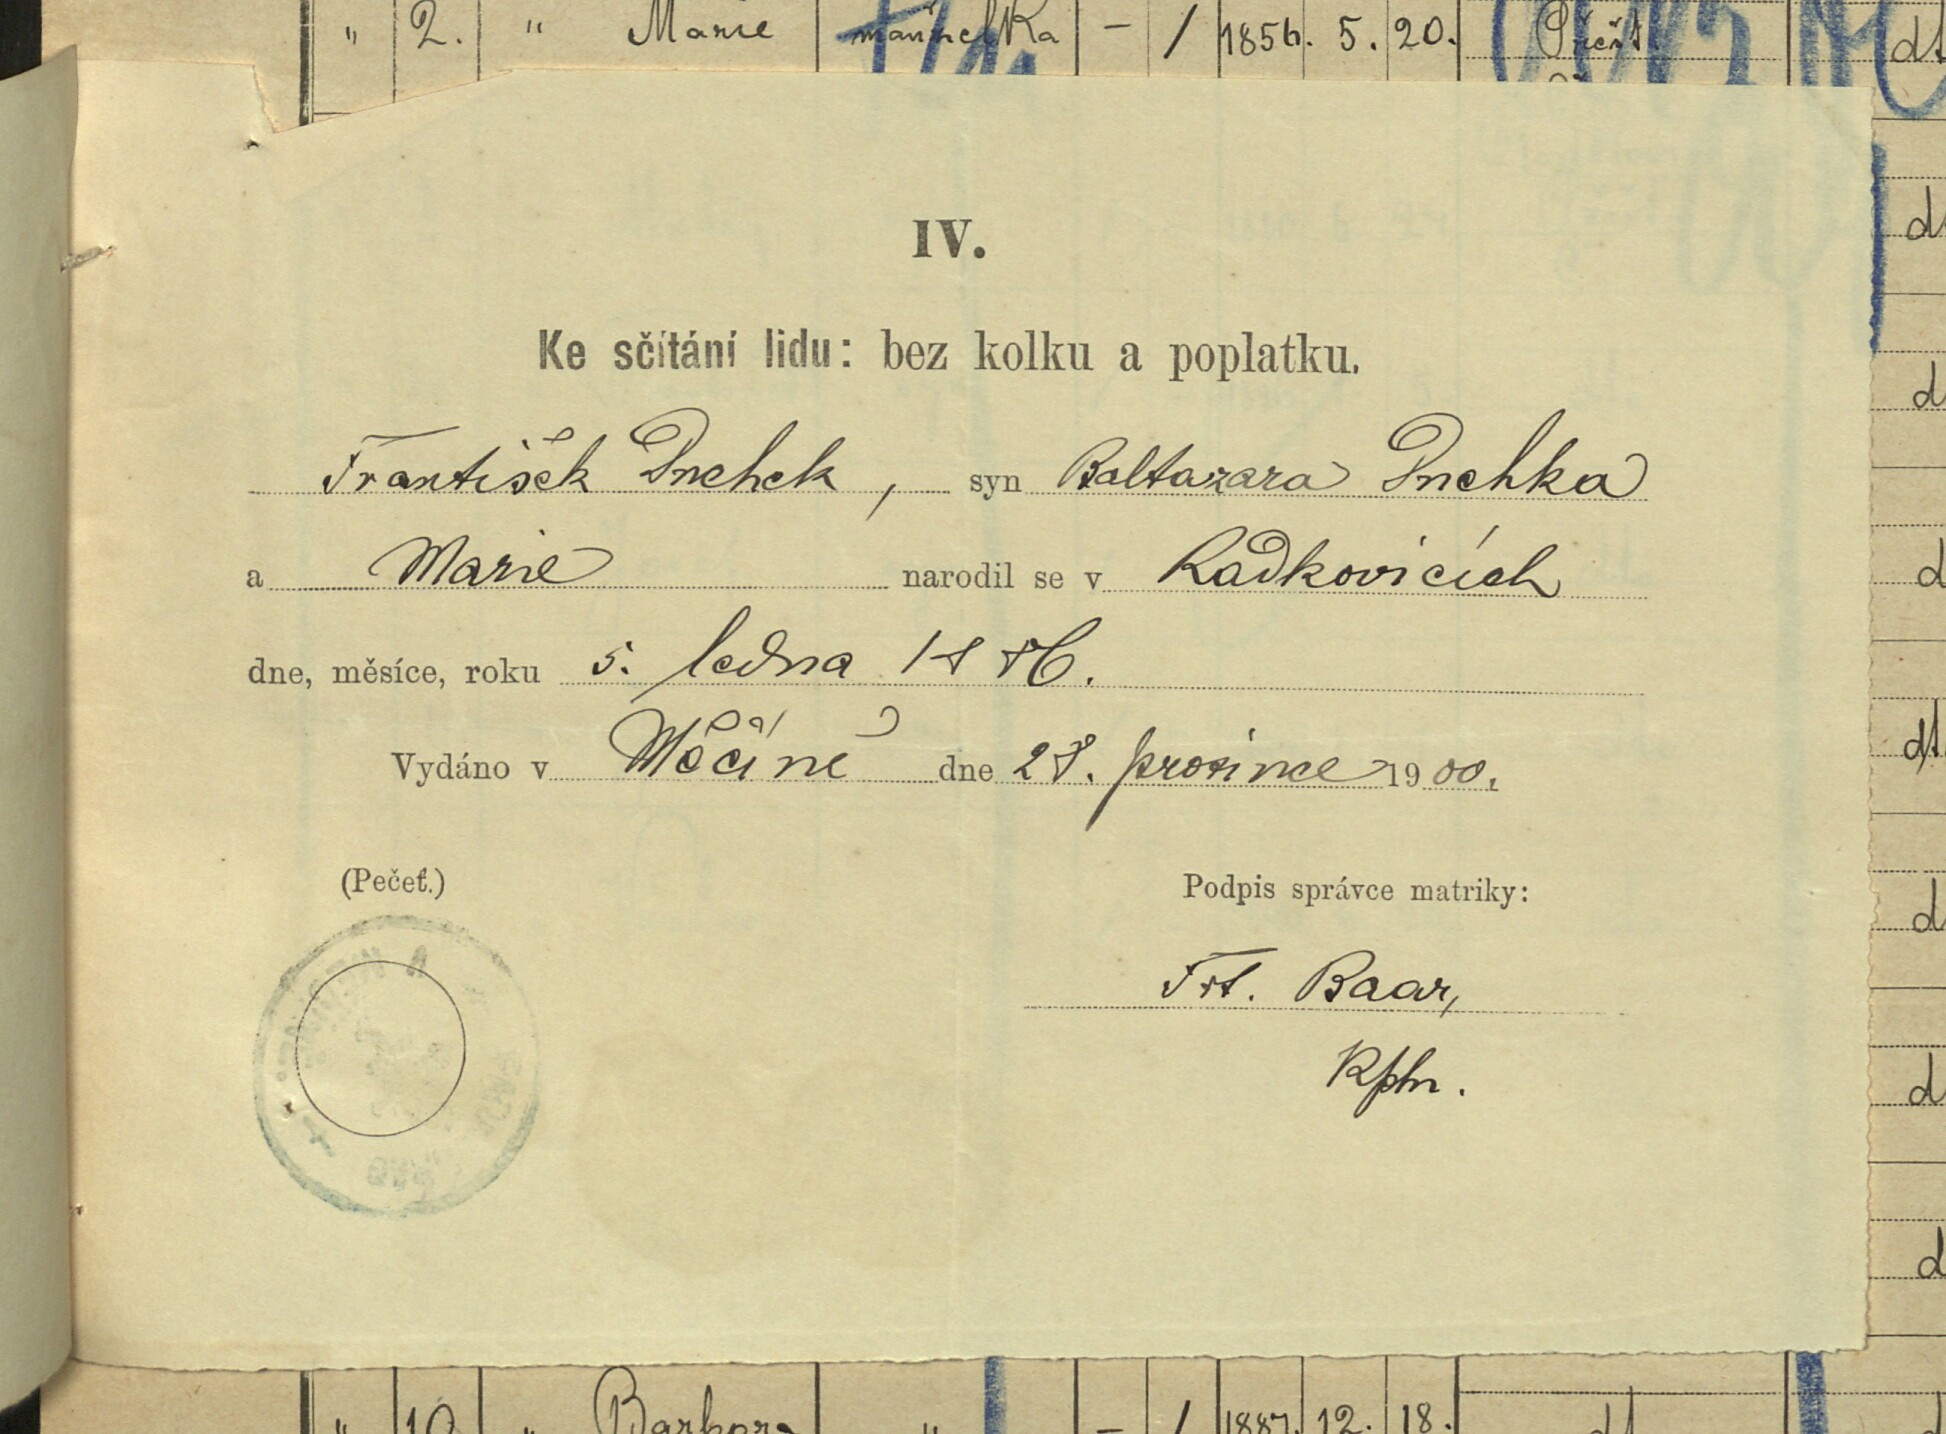 " 2. " Marie manželka – 1 1856. 5. 20. Přešt.
IV.
Ke sčítání lidu: bez kolku a poplatku.
František Duchek, syn Baltazara Duchka
a Marie narodil se v Radkovicích
dne, měsíce, roku 5. ledna 1886.
Vydáno v Měčíně dne 28. prosince 1900.
(Pečeť.) Podpis správce matriky:
Frt. Baar,
Kpln.
" 10 " Barbora " – 1 1887. 12. 18. dt